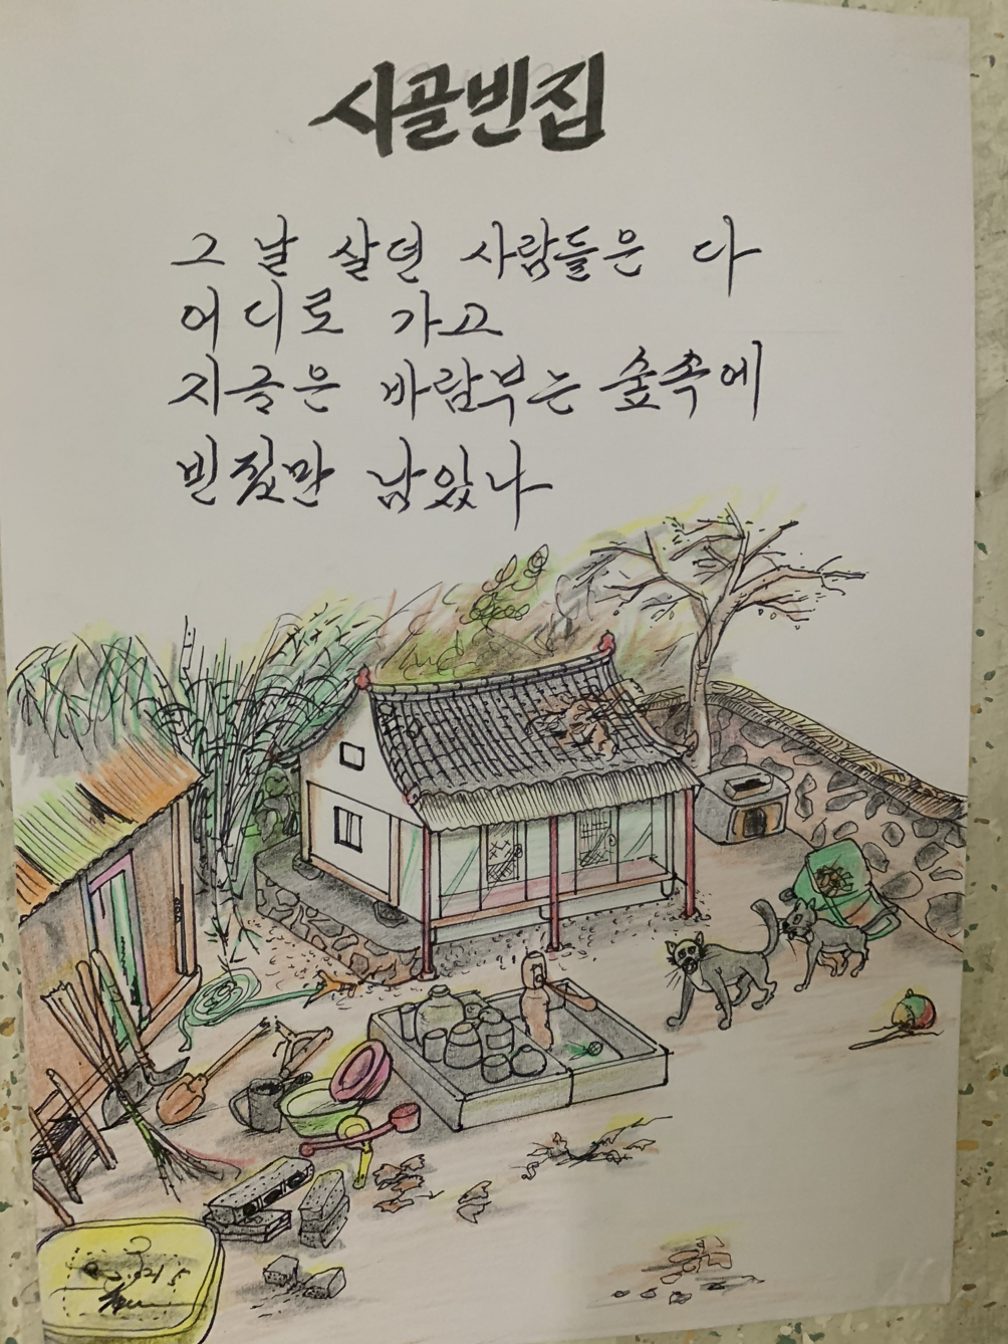 시골빈집
그 날 살던 사람들은 다
어디로 가고
지금은 바람부는 숲속에
빈집만 남있나